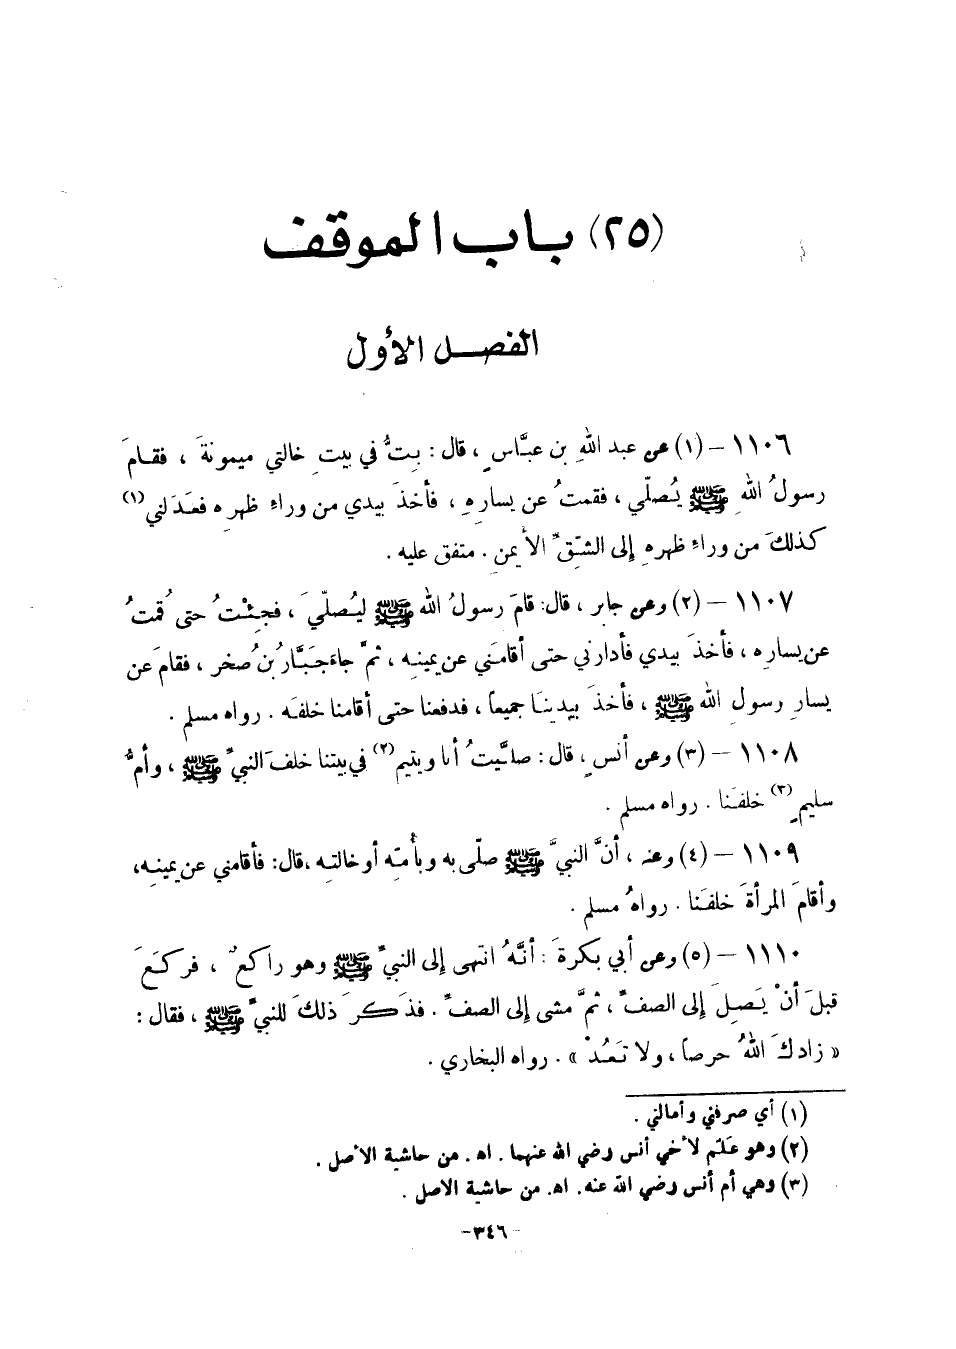 (٢٥) باب الموقف
الفصل الأول
١١٠٦ – (١) عن عبد اللهِ بن عبَّاسٍ ، قال : بِتُّ في بيتِ خالتي ميمونةَ ، فقامَ
رسولُ اللهِ ﷺ يُصلّي ، فقمتُ عن يسارِهِ ، فأخذَ بيدي من وراءِ ظهرِه فعَدَلني(١)
كذلكَ من وراءِ ظهرِهِ إلى الشقِّ الأيمنِ . متفق عليه .
١١٠٧ – (٢) وعن جابر ، قال: قامَ رسولُ الله ﷺ ليُصلّيَ ، فجِئْتُ حتى قُمتُ
عن يسارِه ، فأخذَ بيدي فأدارني حتى أقامَني عن يمينِه ، ثمَّ جاءَ جَبَّارُ بنُ صخر ، فقامَ عن
يسارِ رسولِ الله ﷺ ، فأخذَ بيدينا جميعاً ، فدفعنا حتى أقامنا خلفَه . رواه مسلم .
١١٠٨ – (٣) وعن أنسٍ ، قال : صلَّيتُ أنا ويتيم(٢) في بيتنا خلفَ النبيِّ ﷺ ، وأمُّ
سليمٍ(٣) خلفَنا . رواه مسلم .
١١٠٩ – (٤) وعنه ، أنَّ النبيَّ ﷺ صلّى به وبأُمّه أو خالتِه ،قال: فأقامني عن يمينِه،
وأقامَ المرأةَ خلفَنا . رواهُ مسلم .
١١١٠ – (٥) وعن أبي بكرةَ : أنَّهُ انتهى إلى النبيِّ ﷺ وهو راكعٌ ، فركَعَ
قبلَ أنْ يَصِلَ إلى الصفِّ ، ثمَّ مشى إلى الصفِّ . فذَكرَ ذلكَ للنبيِّ ﷺ ، فقال :
« زادكَ اللهُ حرصاً ، ولا تَعُدْ » . رواه البخاري .
(١) أي صرفني وأمالني .
(٢) وهو علم لأخي أنس رضي الله عنهما . اه . من حاشية الأصل .
(٣) وهي أم أنس رضي الله عنه . اه. من حاشية الاصل .
-٣٤٦-